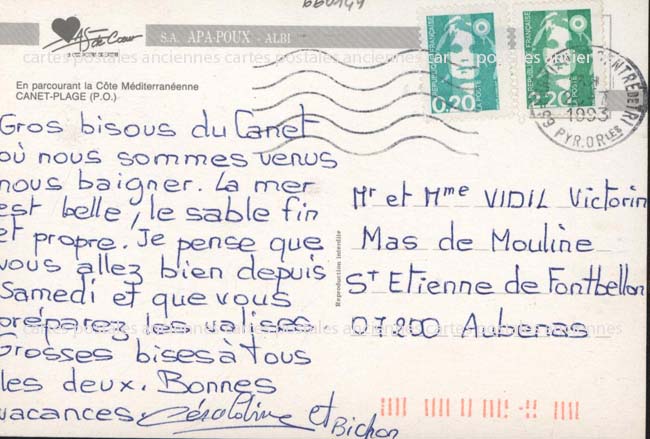 660149
As de Cœur
S.A. APA-POUX - ALBI
En parcourant la Côte Méditerranéenne
CANET-PLAGE (P.O.)
RÉPUBLIQUE FRANÇAISE
0,20
LA POSTE
RÉPUBLIQUE FRANÇAISE
2,20
LA POSTE
CENTRE DE TRI
1993
PYR. ORLES
Gros bisous du Canet
où nous sommes venus
nous baigner. La mer
est belle, le sable fin
et propre. Je pense que
vous allez bien depuis
Samedi et que vous
preparez les valises
Grosses bises à tous
les deux. Bonnes
vacances. Géraldine et Bichon
Reproduction interdite
Mr et Mme VIDIL Victorin
Mas de Mouline
St Etienne de Fontbellon
07200 Aubenas
cartes postales anciennes cartes postales anciennes cartes postales anciennes
cartes postales anciennes cartes postales anciennes cartes postales anciennes